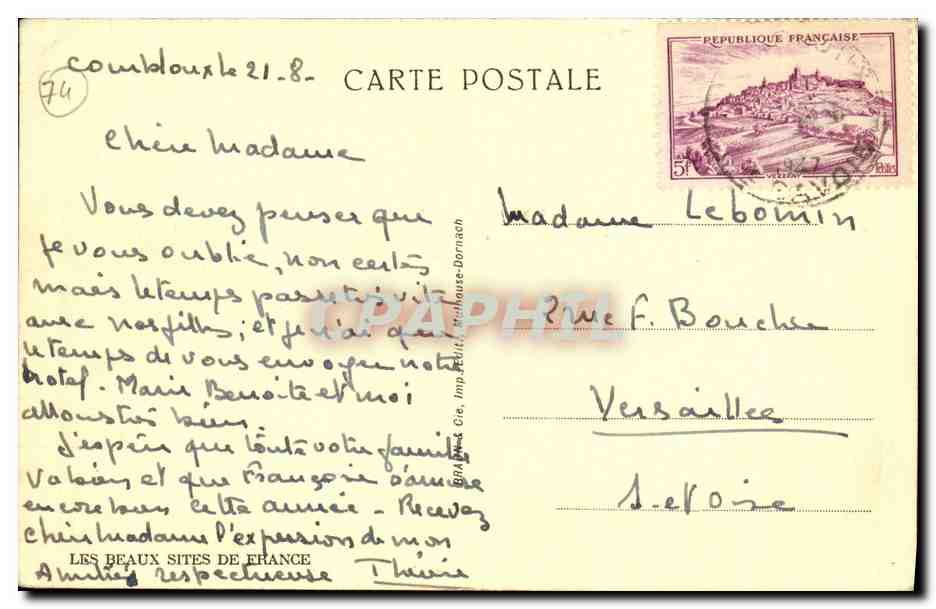 Combloux le 21-8-
74
CARTE POSTALE
Chère Madame
Vous devez penser que
je vous oublie, non certes
mais le temps passe très vite
avec nos filles; et je n'ai que
le temps de vous envoyer notre
hotel - Marie Benoite et moi
allons très bien.
J'espère que toute votre famille
va bien et que Françoise s'amuse
encore bien cette année - Recevez
chère Madame l'expression de mon
LES BEAUX SITES DE FRANCE
Amitiés respectueuse
BRAUN & Cie, Imp.-Édit., Mulhouse-Dornach
CPAPHIL
REPUBLIQUE FRANÇAISE
5F
VEZELAY
POSTES
1947
SAVOIE
Madame Lebomin
2 rue F. Boucher
Versailles
S. et Oise